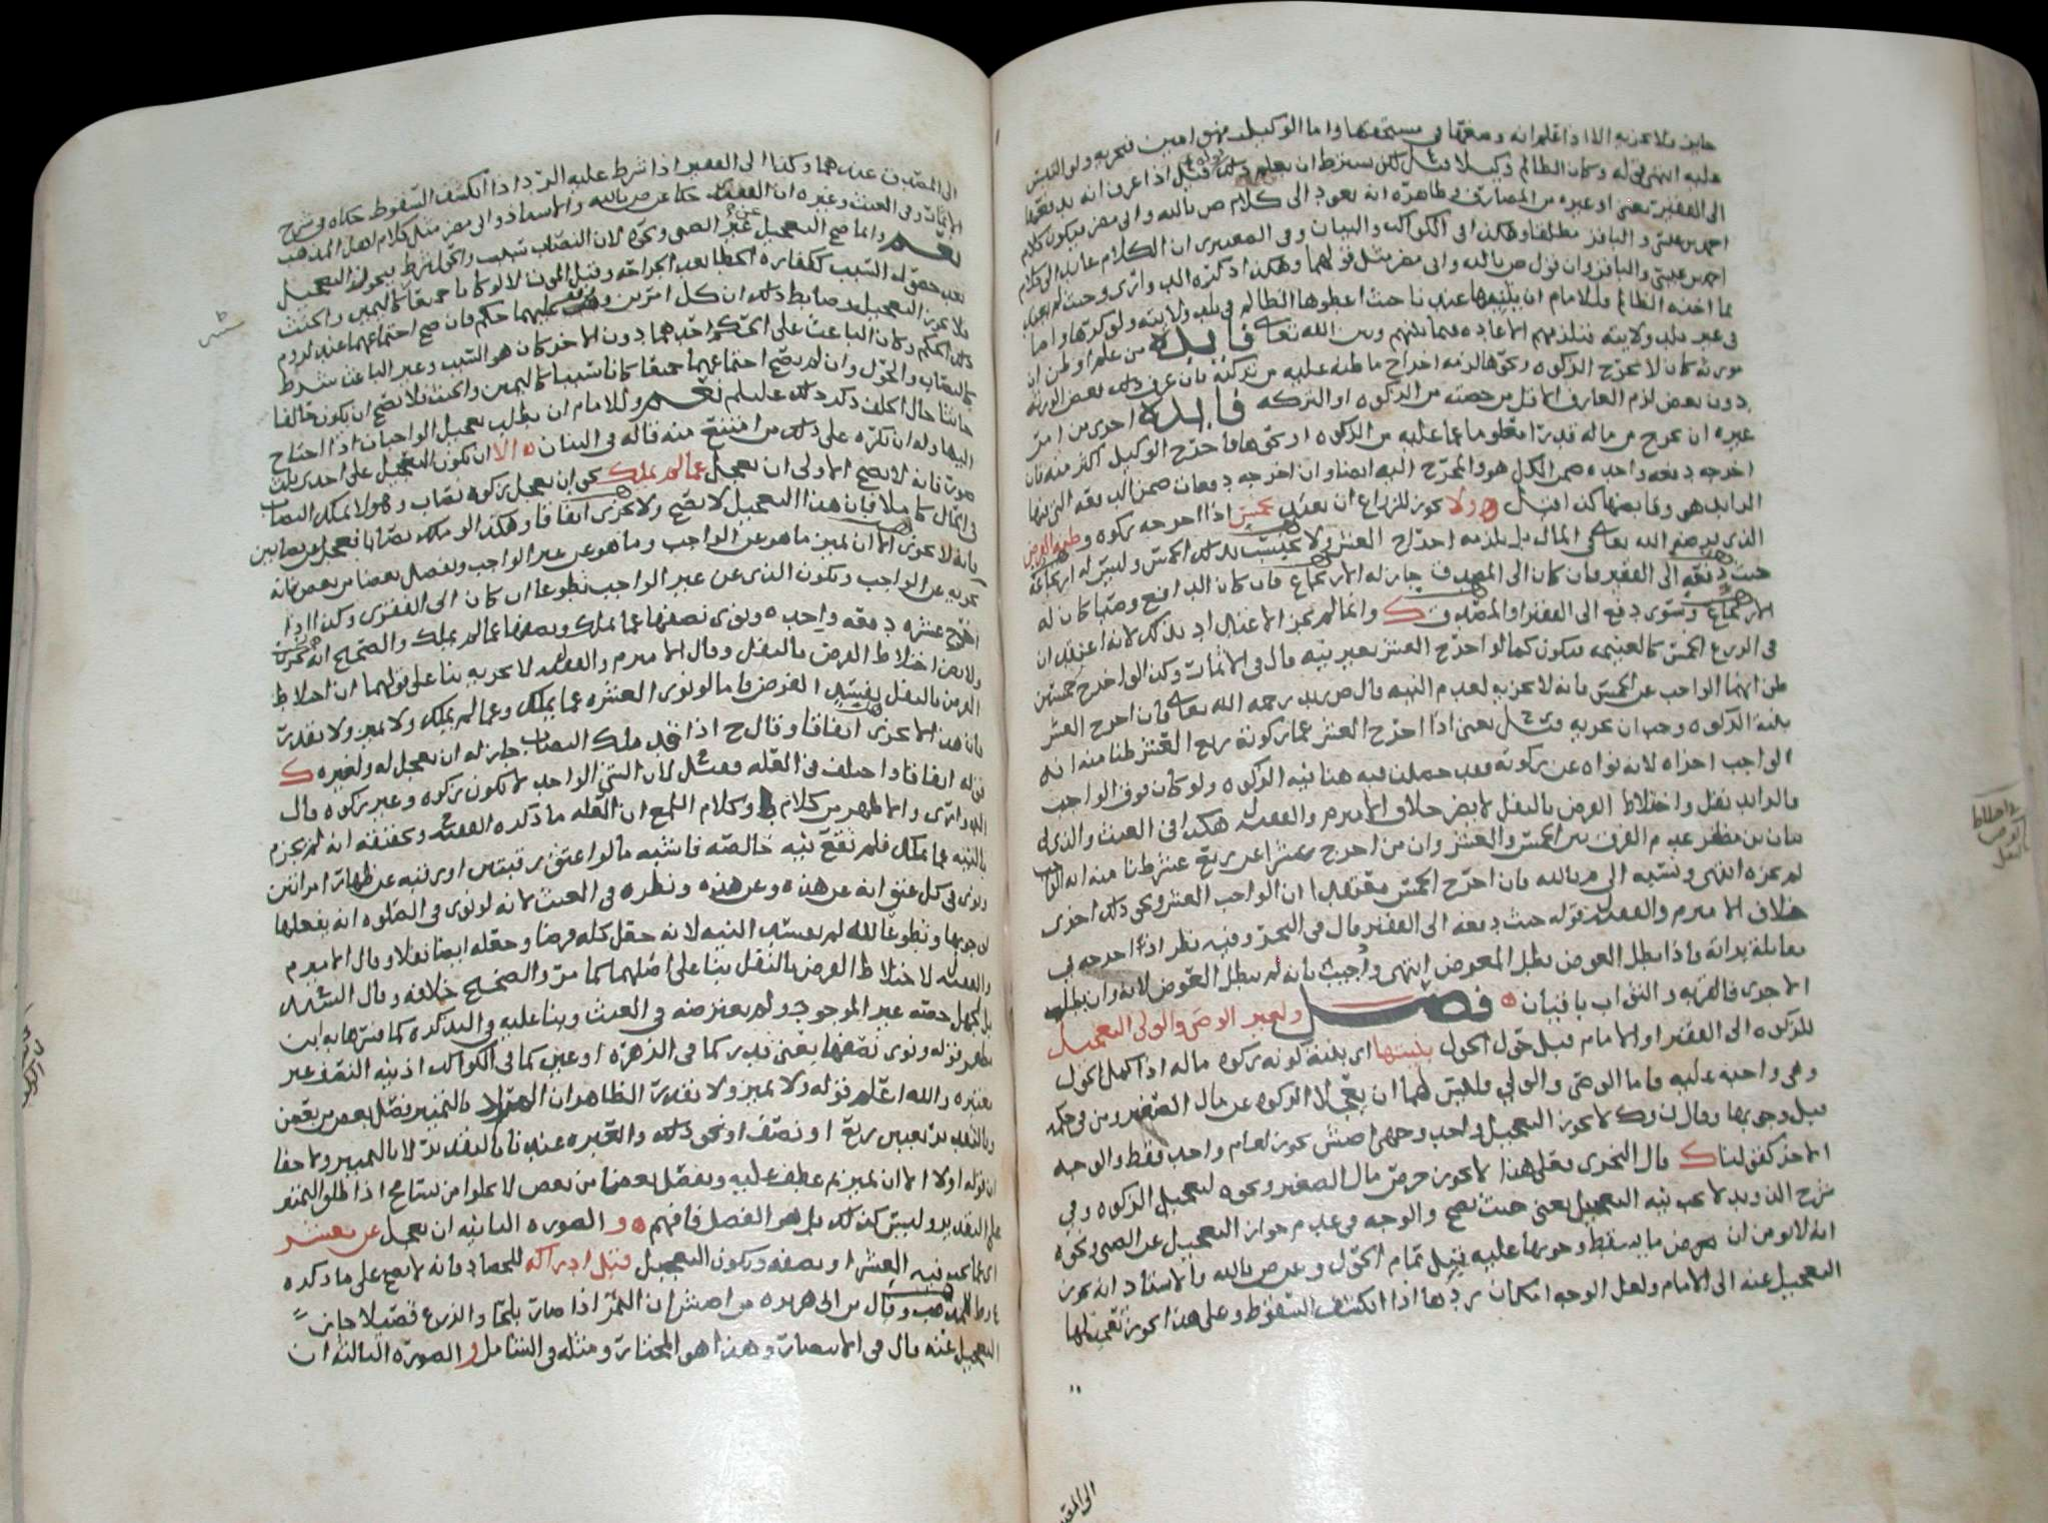 عليه انتهى قوله وكان الظالم وكيلا قيل لكن بشرط ان يعلم ذلك قيل اذا عرف انه يدفعها
الى الفقير يعني او غيره من المصارف وظاهره انه يعود الى كلام ص بالله وابي مضر فيكون كلام
احمد بن عيسى والباقر مطلقا وهكذا في الكواكب والبيان وفي الصعيتري ان الكلام عائد الى كلام
احمد بن عيسى والباقر وان قول ص بالله وابي مضر مثل قولهما وهكذا ذكره الدواري وحيث لم
في غير بلد ولايته فتلزمهم الاعادة فيما بينهم وبين الله تعالى فايده من علم او ظن ان
مورثه كان لا يخرج الزكوه ونحوها لزمه اخراج ما ظنه عليه من تركته فان عرف ذلك بعض الورثه
دون بعض لزم العارف الاقل من حصته من الزكوه او التركه فايده اخرى من امر
غيره ان يخرج من ماله قدرا معلوما عما عليه من الزكوه او نحوها فاخرج الوكيل اكثر منه فان
اخرجه دفعه واحده ضمن الكل هو والمخرج اليه ايضا وان اخرجه دفعات ضمن الدفعه التي فيها
الزايد هو وقابضها كذا قيل ه ولا يجوز للزراع ان يعتد بخمس اذا اخرجه زكوه وظنه الفرض
الذي يرضي الله تعالى في المال بل يلزمه اخراج العشر ولا يحتسب بذلك الخمس وليس له ارتجاعه
حيث دفعه الى الفقير فان كان الى المصدق جاز له الارتجاع فان كان الدافع وصيا كان له
الارتجاع وسوى دفع الى الفقير او المصدق ك وانما لم يجز الاعتداد بذلك لانه اعتقد ان
في الزرع الخمس كالغنيمه فيكون كما لو اخرج العشر بغير نيه قال في الاثمار وكذا لو اخرج خمسين
ظن انهما الواجب عن الخمس فانه لا يجزيه لعدم النيه قال ص زيد رحمه الله تعالى فان اخرج العشر
بنية الزكوه وجب ان يجزيه ومثل يعني اذا اخرج العشر عما زكوته ربع العشر ظنا منه انه
الواجب اجزاه لانه نواه عن زكوته فقد حصلت فيه هنا نيه الزكوه ولو كان فوق الواجب
فالزايد نفل واختلاط الفرض بالنفل لا يضر خلاف الامير م والفقيه ل هكذا في الغيث والذي في
بيان بن مظفر عدم الفرق بين الخمس والعشر وان من اخرج عشرا عن ربع عشر ظنا منه انه الواجب
لم يجزه انتهى ونسبه الى م بالله فان اخرج الخمس معتقدا ان الواجب العشر ونحو ذلك اجزى
خلاف الامير م والفقيه ل قوله حيث دفعه الى الفقير قال في البحر وفيه نظر اذا اخرجه في
مقابلة براته فاذا بطل العوض بطل المعوض انتهى واجيب بانه لم يبطل العوض لانه وان بطل
الاجزى فالقربه والثواب باقيان ه فصل ولغير الوصي والولي التعجيل
للزكوه الى الفقير او الامام قبل حول الحول بنيتها اي بنية كونه زكوه ماله اذا كمل الحول
وهي واجبه عليه فاما الوصي والولي فليس لهما ان يعجلا الزكوه عن مال الصغير ومن في حكمه
قبل وجوبها وقال ن وك لا يجوز التعجيل واحد وجهي اصش يجوز لعام واحد فقط والوجه
الاخر كقولنا ك قال النجري فعلى هذا لا يجوز خرص مال الصغير ونحوه لتعجيل الزكوه وفي
شرح الذويد لا يجب نيه التعجيل يعني حيث يصح والوجه في عدم جواز التعجيل عن الصبي ونحوه
انه لا يومن ان يعرض ما يسقط وجوبها عليه قبل تمام الحول وعن ص بالله والاستاد انه يجوز
التعجيل عنه الى الامام ولعل الوجه امكان ردها اذا انكشف السقوط وعلى هذا يجوز تقديمها
الى المصدق عندهما وكذا الى الفقير اذا شرط عليه الرد اذا انكشف السقوط حكاه في شرح
الاثمار وفي الغيث وغيره ان الفقيه حكا عن ص بالله والاستاذ وابي مضر مثل كلام اهل المذهب
نعم وانما صح التعجيل عن غير الصبي ونحوه لان النصاب سبب والحول شرط يجوز التعجيل
بعد حصول السبب ككفارة الخطا بعد الجراحه وقبل الموت لا لو كانا جميعا كاليمين والحنث
فلا يجوز التعجيل وضابط ذلك ان كل امرين وقف عليهما حكم فان صح اجتماعهما عند لزوم
ذلك الحكم وكان الباعث على الحكم احدهما دون الاخر كان هو السبب وغير الباعث شرط
كالنصاب والحول وان لم يصح اجتماعهما جميعا كانا سببا كاليمين والحنث فلا يصح ان يكون حالفا
حانثا حال الحلف ذكر ذلك عليلم نعم وللامام ان يطلب تعجيل الواجبات اذا احتاج
اليها وله ان يكره على ذلك من امتنع منه قاله في البيان ه الا ان يكون التعجيل على احدى ثلث
صور فانه لا يصح الاولى ان يعجل عما لم يملك نحو ان يعجل زكوه نصاب وهو لا يملك النصاب
في الحال كاملا فان هذا التعجيل لا يصح ولا يجزى اتفاقا وهكذا لو ملك نصابا فعجل عن نصابين
فانه لا يجزى الا ان يميز ما هو عن الواجب وما هو عن غير الواجب ويفصل بعضا من بعض فانه
يجزيه عن الواجب ويكون الذي عن غير الواجب تطوعا ان كان الى الفقرى وكذا اذا
اخرج عشره دفعه واحده ونوى نصفها عما يملك ونصفها عما لم يملك والصحيح انه يجزى
ولا يضر اختلاط الفرض بالنفل وقال الامير م والفقيه ل لا يجزيه بنا على قولهما ان اختلاط
الفرض بالنفل يفسد الفرض فاما لو نوى العشره عما يملك وعما لم يملك ولا تميز ولا تقدير
فان هذا لا يجزى اتفاقا وقال ح اذا قد ملك النصاب جاز له ان يعجل له ولغيره ك
قوله اتفاقا واختلف في العله فقيل لان الشي الواحد لا يكون زكوه وغير زكوه قال
الدواري والاظهر من كلام ط وكلام اللمع ان العله ما ذكره الفقيه وتحقيقه انه لم يجزم
بالنيه عما يملك فلم تقع نيه خالصه فاشبه ما لو اعتق رقبتين او رقبه عن ظهار امراتين
ونوى في كل عتق انه عن هذه وعن هذه ونظره في الغيث لانه لو نوى في الصلوه انه يفعلها
لوجوبها وتطوعا لله لم يفسد النيه لانه جعل كله فرضا وجعله ايضا نفلا وقال الامير م
والفقيه ل لاختلاط الفرض بالنفل بنا على اصلهما كما مر والصحيح خلافه وقال السيد
بل لجهل حصته غير الموجود ولم يعترضه في الغيث وبنا عليه في التذكره كما فسرها به ابن
مظفر قوله ونوى نصفها يعني قدر كما في الزهره او عين كما في الكواكب اذ نيه النصف غير
معتبره والله اعلم قوله ولا تميز ولا تقدير الظاهر ان المراد بالتميز فصل بعض من بعض
وبالتقدير تعيين ربع او نصف او نحو ذلك والعبره عنده بالتقدير لا بالتميز ولا
ان قوله اولا الا ان يميز ثم عطف عليه ويفصل بعضا من بعض لا يخلوا من تسامح اذا طلق التميز
على التقدير وليس كذلك بل هو الفصل فافهم ه و الصوره الثانيه ان يعجل عن معشر
اي مما يجب فيه العشر او نصفه ويكون التعجيل قبل ادراكه للحصاد فانه لا يصح على ما ذكره
ط للمذهب وقال ابن ابي هريره من اصش ان الثمر اذا صار بلحا والزرع قصيلا جاز
التعجيل عنه قال في الانتصار وهذا هو المختار ومثله في الشامل و الصوره الثالثه ان